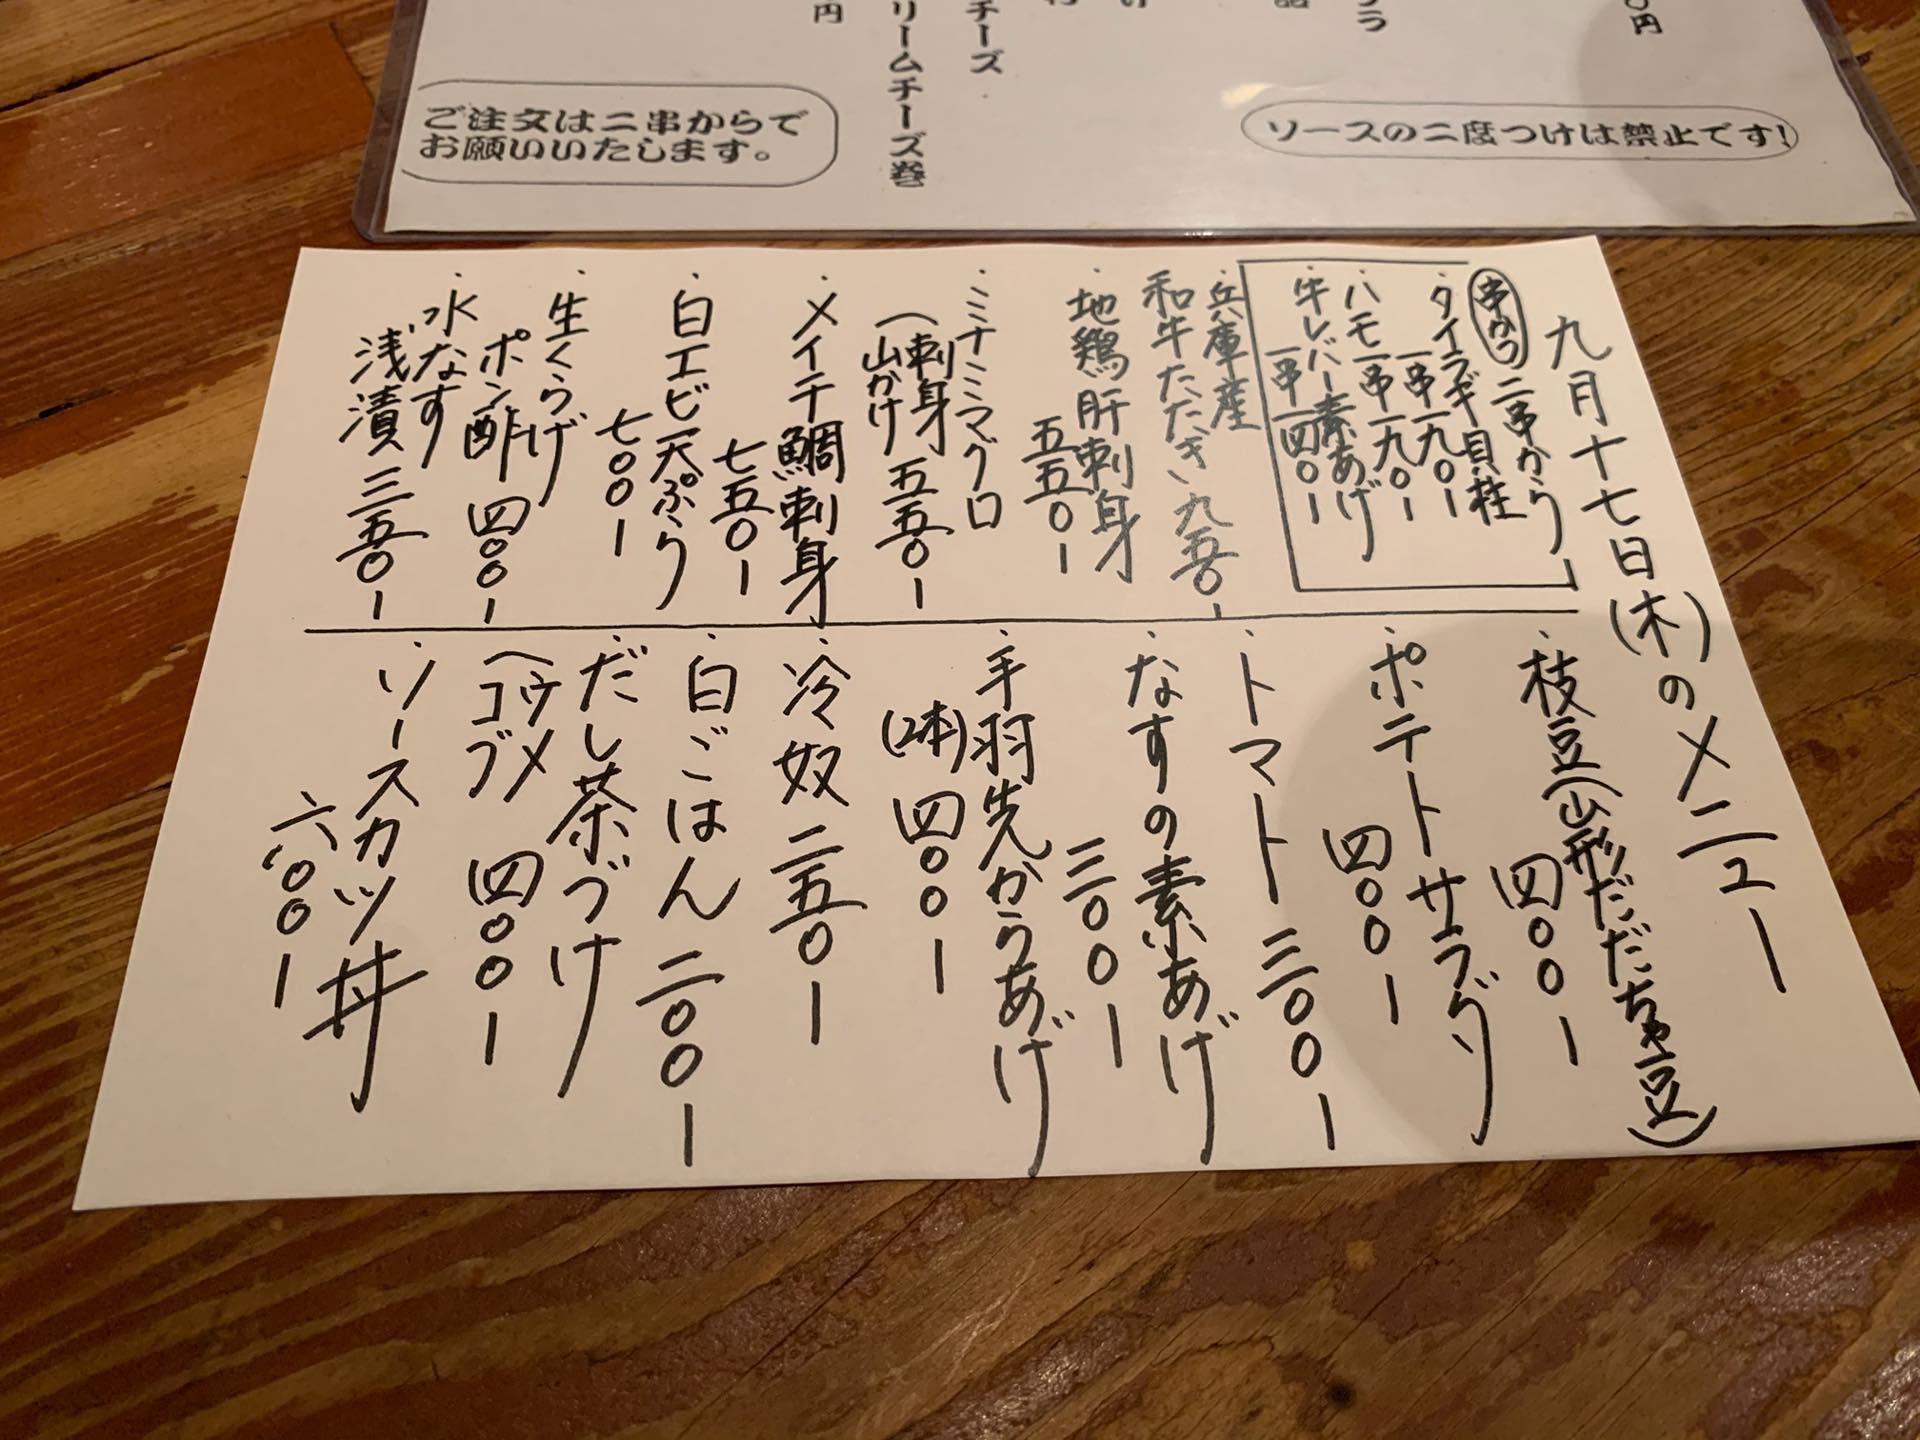 円
リームチーズ巻
チーズ
ラ
円
ご注文は二串からで
お願いいたします。
ソースの二度つけは禁止です!
九月十七日(木)のメニュー
串かつ 二串から
・タイラギ貝柱
一串一九〇ー
・ハモ一串一九〇ー
・牛レバー素あげ
一串一四〇ー
・兵庫産
和牛たたき九五〇ー
・地鶏肝刺身
五五〇ー
・ミナミマグロ
(刺身
山かけ 五五〇ー
・メイチ鯛刺身
七五〇ー
・白エビ天ぷら
七〇〇ー
・生くらげ
ポン酢 四〇〇ー
・水なす
浅漬 三五〇ー
・枝豆(山形だだちゃ豆)
四〇〇ー
・ポテトサラダ
四〇〇ー
・トマト 三〇〇ー
・なすの素あげ
三〇〇ー
・手羽先からあげ
(2本) 四〇〇ー
・冷奴 二五〇ー
・白ごはん 二〇〇ー
・だし茶づけ
(ウメ
コブ 四〇〇ー
・ソースカツ丼
六〇〇ー